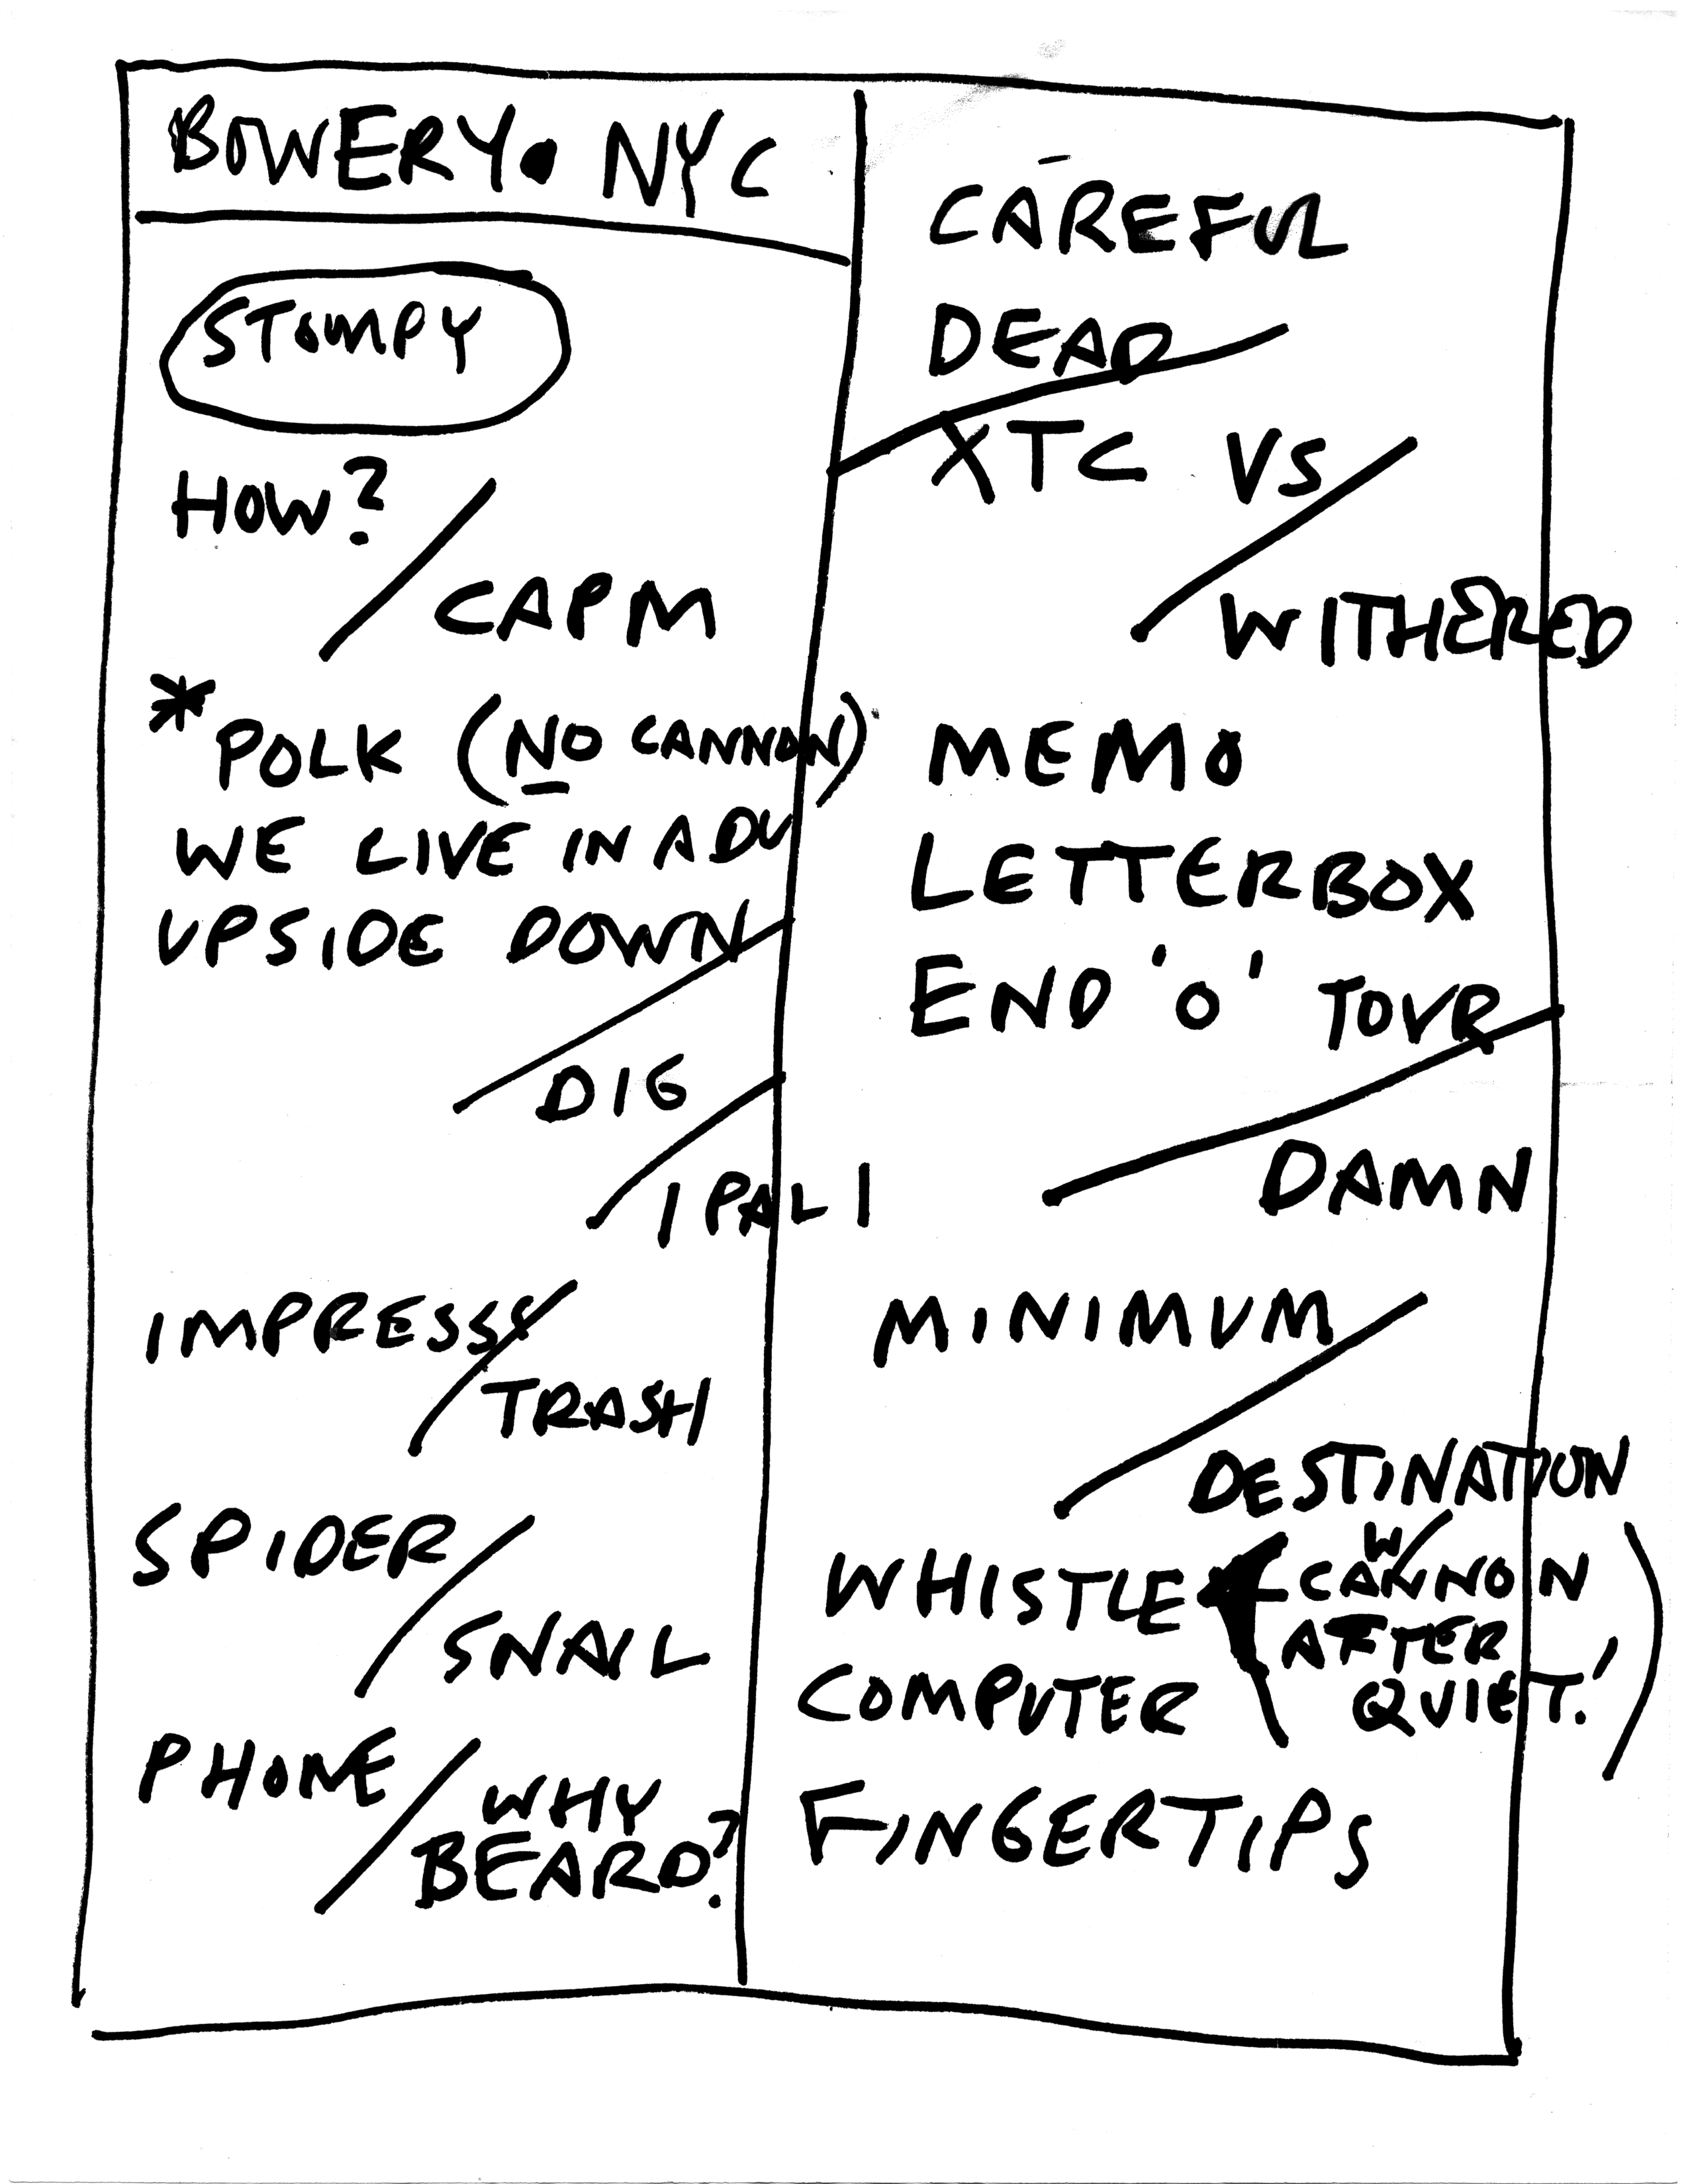 BOWERY • NYC
STOMPY
HOW?
/ CAPM
* POLK (NO CANNON)
WE LIVE IN A DU
UPSIDE DOWN
/ DIG
/ IPALI
IMPRESSS
/ TRASH
SPIDER
/ SNAIL
PHONE / WHY
BEARD?
CAREFUL
DEAD
XTC VS
/ WITHERED
MEMO
LETTERBOX
END 'O' TOUR
/ DAMN
MINIMUM
/ DESTINATION
WHISTLE (W/ CANNON
AFTER
QUIET!)
COMPUTER
FINGERTIPS